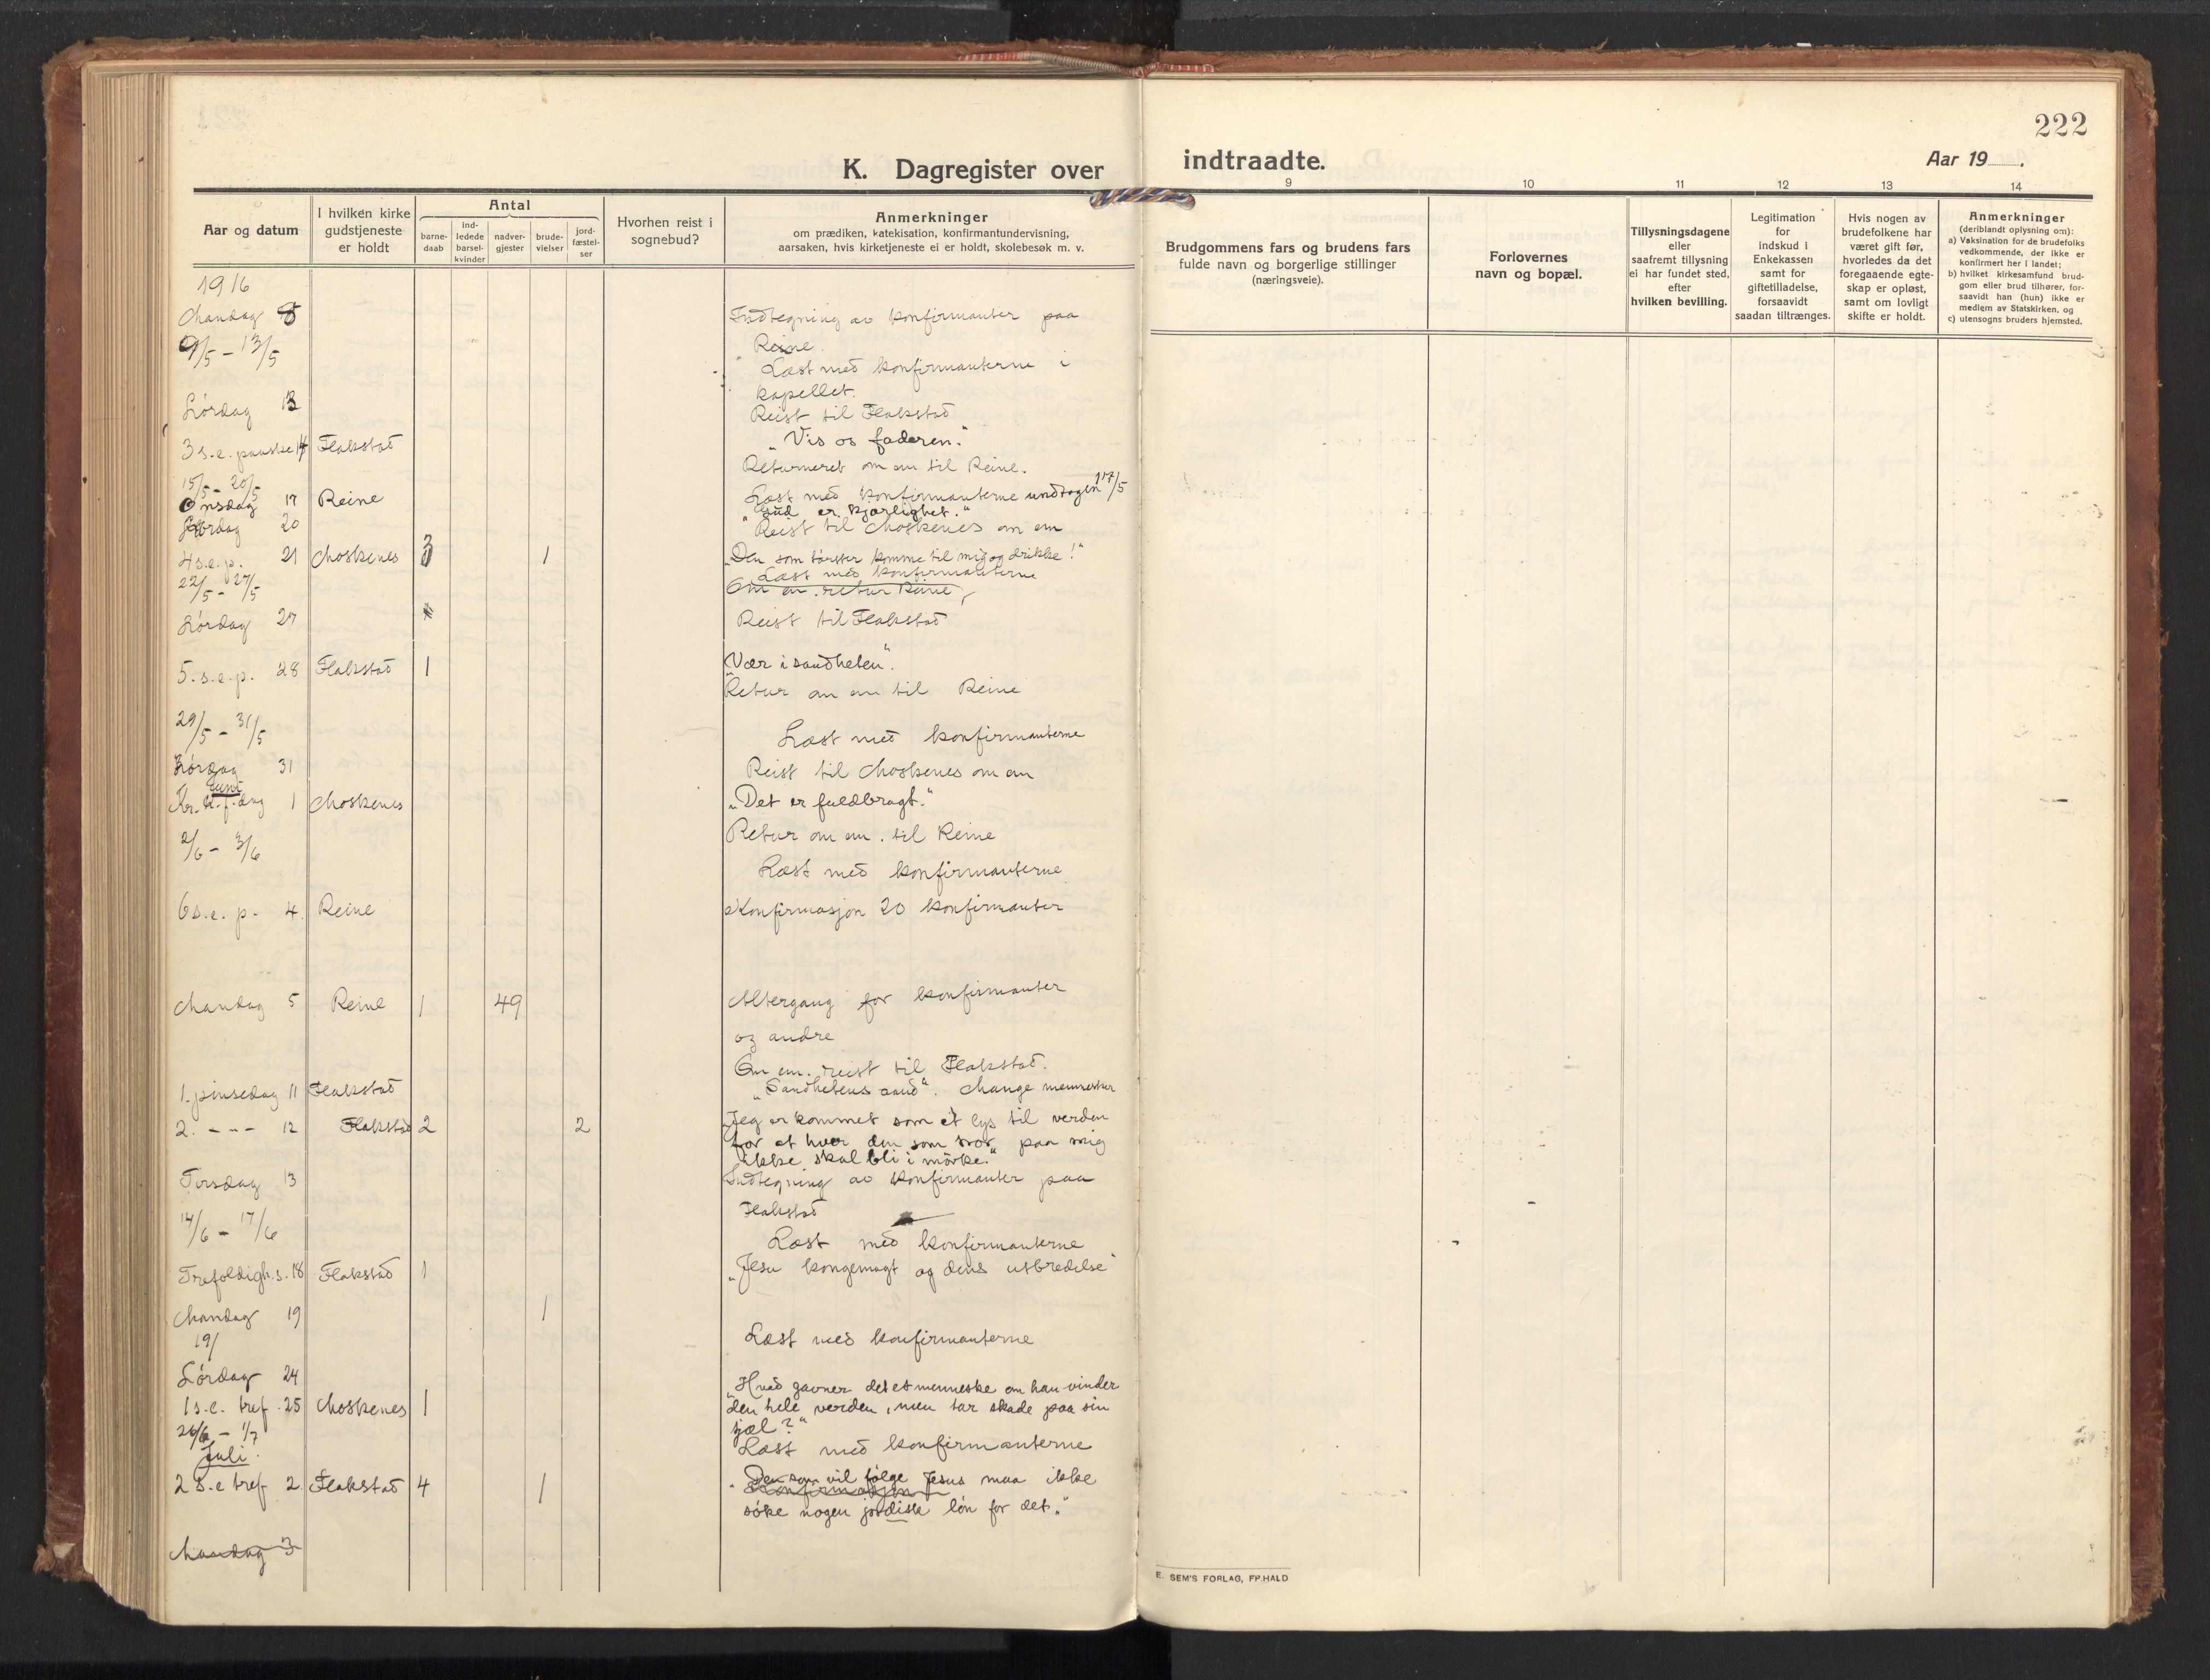 222
K. Dagregister over indtraadte.
Aar 19 .
Aar og datum
I hvilken kirke gudstjeneste er holdt
Antal
barne-daab
ind-ledede barsel-kvinder
nadver-gjester
brude-vielser
jord-fæstel-ser
Hvorhen reist i sognebud?
Anmerkninger
om prædiken, katekisation, konfirmantundervisning,
aarsaken, hvis kirketjeneste ei er holdt, skolebesøk m. v.
9
Brudgommens fars og brudens fars
fulde navn og borgerlige stillinger
(næringsveie).
10
Forlovernes
navn og bopæl.
11
Tillysningsdagene
eller
saafremt tillysning
ei har fundet sted,
efter
hvilken bevilling.
12
Legitimation
for
indskud i
Enkekassen
samt for
giftetilladelse,
forsaavidt
saadan tiltrænges.
13
Hvis nogen av
brudefolkene har
været gift før,
hvorledes da det
foregaaende egte-
skap er opløst,
samt om lovligt
skifte er holdt.
14
Anmerkninger
(deriblandt oplysning om):
a) Vaksination for de brudefolks
vedkommende, der ikke er
konfirmert her i landet;
b) hvilket kirkesamfund brud-
gom eller brud tilhører, for-
saavidt han (hun) ikke er
medlem av Statskirken, og
c) utensogns bruders hjemsted.
1916
Mandag 8 Indtegning av konfirmanter paa
Reine.
9/5 - 13/5 Læst med konfirmanterne i
kapellet.
Lørdag 13 Reist til Flakstad
3 s.e. paaske 14 Flakstad "Vis os faderen."
Returneret om em til Reine.
15/5 - 20/5 Læst med konfirmanterne undtagen 17/5
Onsdag 17 Reine "Gud er kjærlighet."
Lørdag 20 Reist til Moskenes om em
4 s.e.p. 21 Moskenes 3 1 "Den som tørster komme til mig og drikke!"
22/5 - 27/5 Læst med konfirmanterne
Om em. retur Reine
Lørdag 27 Reist til Flakstad
5. s.e.p. 28 Flakstad 1 "Vær i sandheten".
Retur om em til Reine
29/5 - 31/5 Læst med konfirmanterne
Lørdag 31 Reist til Moskenes om em
Juni
Kr. h.f.dag 1 Moskenes "Det er fuldbragt."
Retur om em. til Reine
2/6 - 3/6 Læst med konfirmanterne
6 s.e. p. 4. Reine Konfirmasjon 20 konfirmanter
Mandag 5 Reine 1 49 Altergang for konfirmanter
og andre
Om em. reist til Flakstad.
1. pinsedag 11 Flakstad "Sandhetens aand". Mange mennesker
2. - " - 12 Flakstad 2 2 "Jeg er kommet som et lys til verden
for at hver den som tror paa mig
ikke skal bli i mørke."
Tirsdag 13 Indtegning av konfirmanter paa
Flakstad
14/6 - 17/6 Læst med konfirmanterne
Trefoldigh.s. 18 Flakstad 1 "Jesu kongemagt og dens utbredelse"
Mandag 19 1
19/ Læst med konfirmanterne
Lørdag 24
1 s.e. tref. 25 Moskenes 1 "Hvad gavner det et menneske om han vinder
den hele verden, men tar skade paa sin
sjæl?"
26/6 - 1/7 Læst med konfirmanterne
Juli.
2 s.e tref 2. Flakstad 4 1 "Den som vil følge Jesus maa ikke
Konfirmasjon
søke nogen jordisk løn for det."
Mandag 3
E. SEM'S FORLAG, FR.HALD